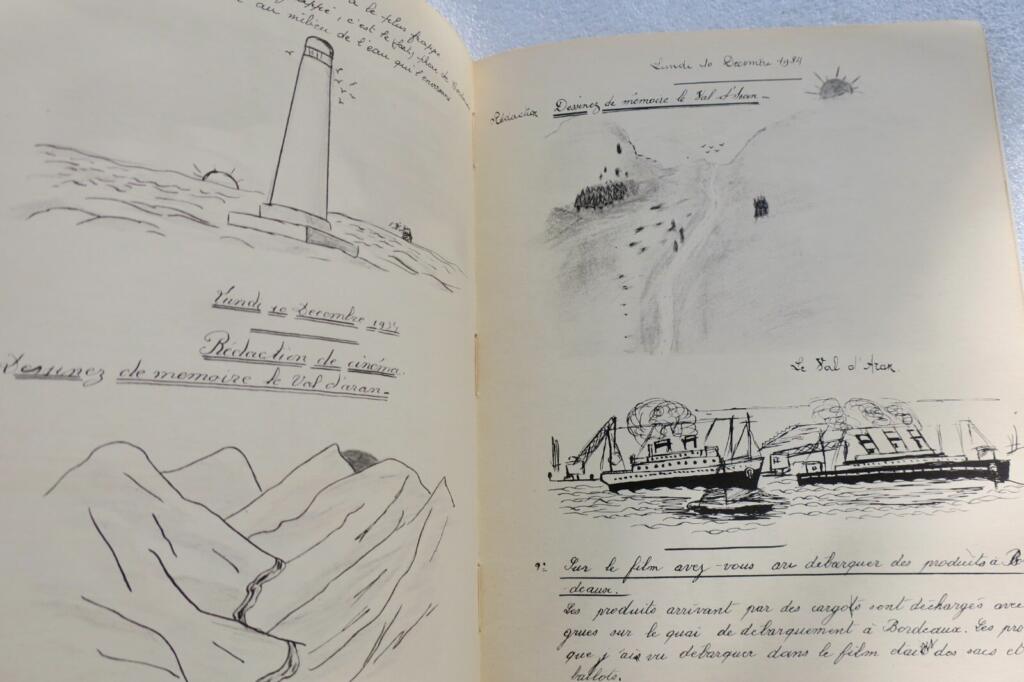 à le plus frappé
frappé, c'est le
au milieu de l'eau qui l'environne
Lundi 10 Decembre 1934
Rédaction de cinéma.
Dessinez de mémoire le Val d'aran_
Lundi 10 Decembre 1934
Rédaction Dessinez de mémoire le Val d'Aran_
Le Val d'Aran.
Sur le film avez-vous vu débarquer des produits à Bo
deaux.
Les produits arrivant par des cargots sont déchargés avec
grues sur le quai de débarquement à Bordeaux. Les pro
que j'ais vu débarquer dans le film des sacs et
ballots.